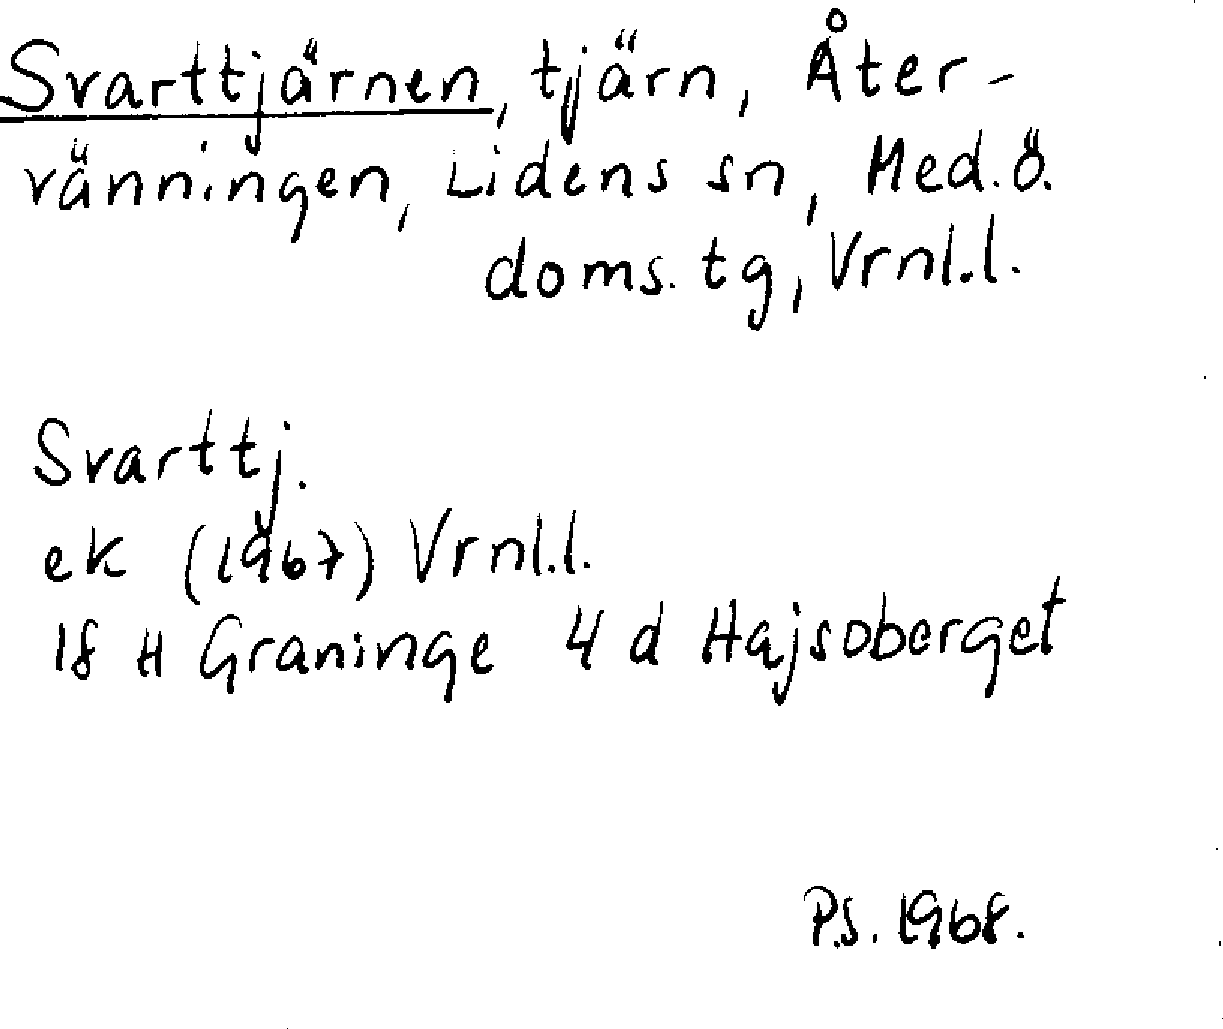 Svarttjärnen, tjärn, Åter-
vänningen, Lidens sn, Med.ö.
doms. tg, Vrnl.l.
Svarttj.
ek (1967) Vrnl.l.
18 H Graninge 4 d Hajsoberget
P.S. 1968.